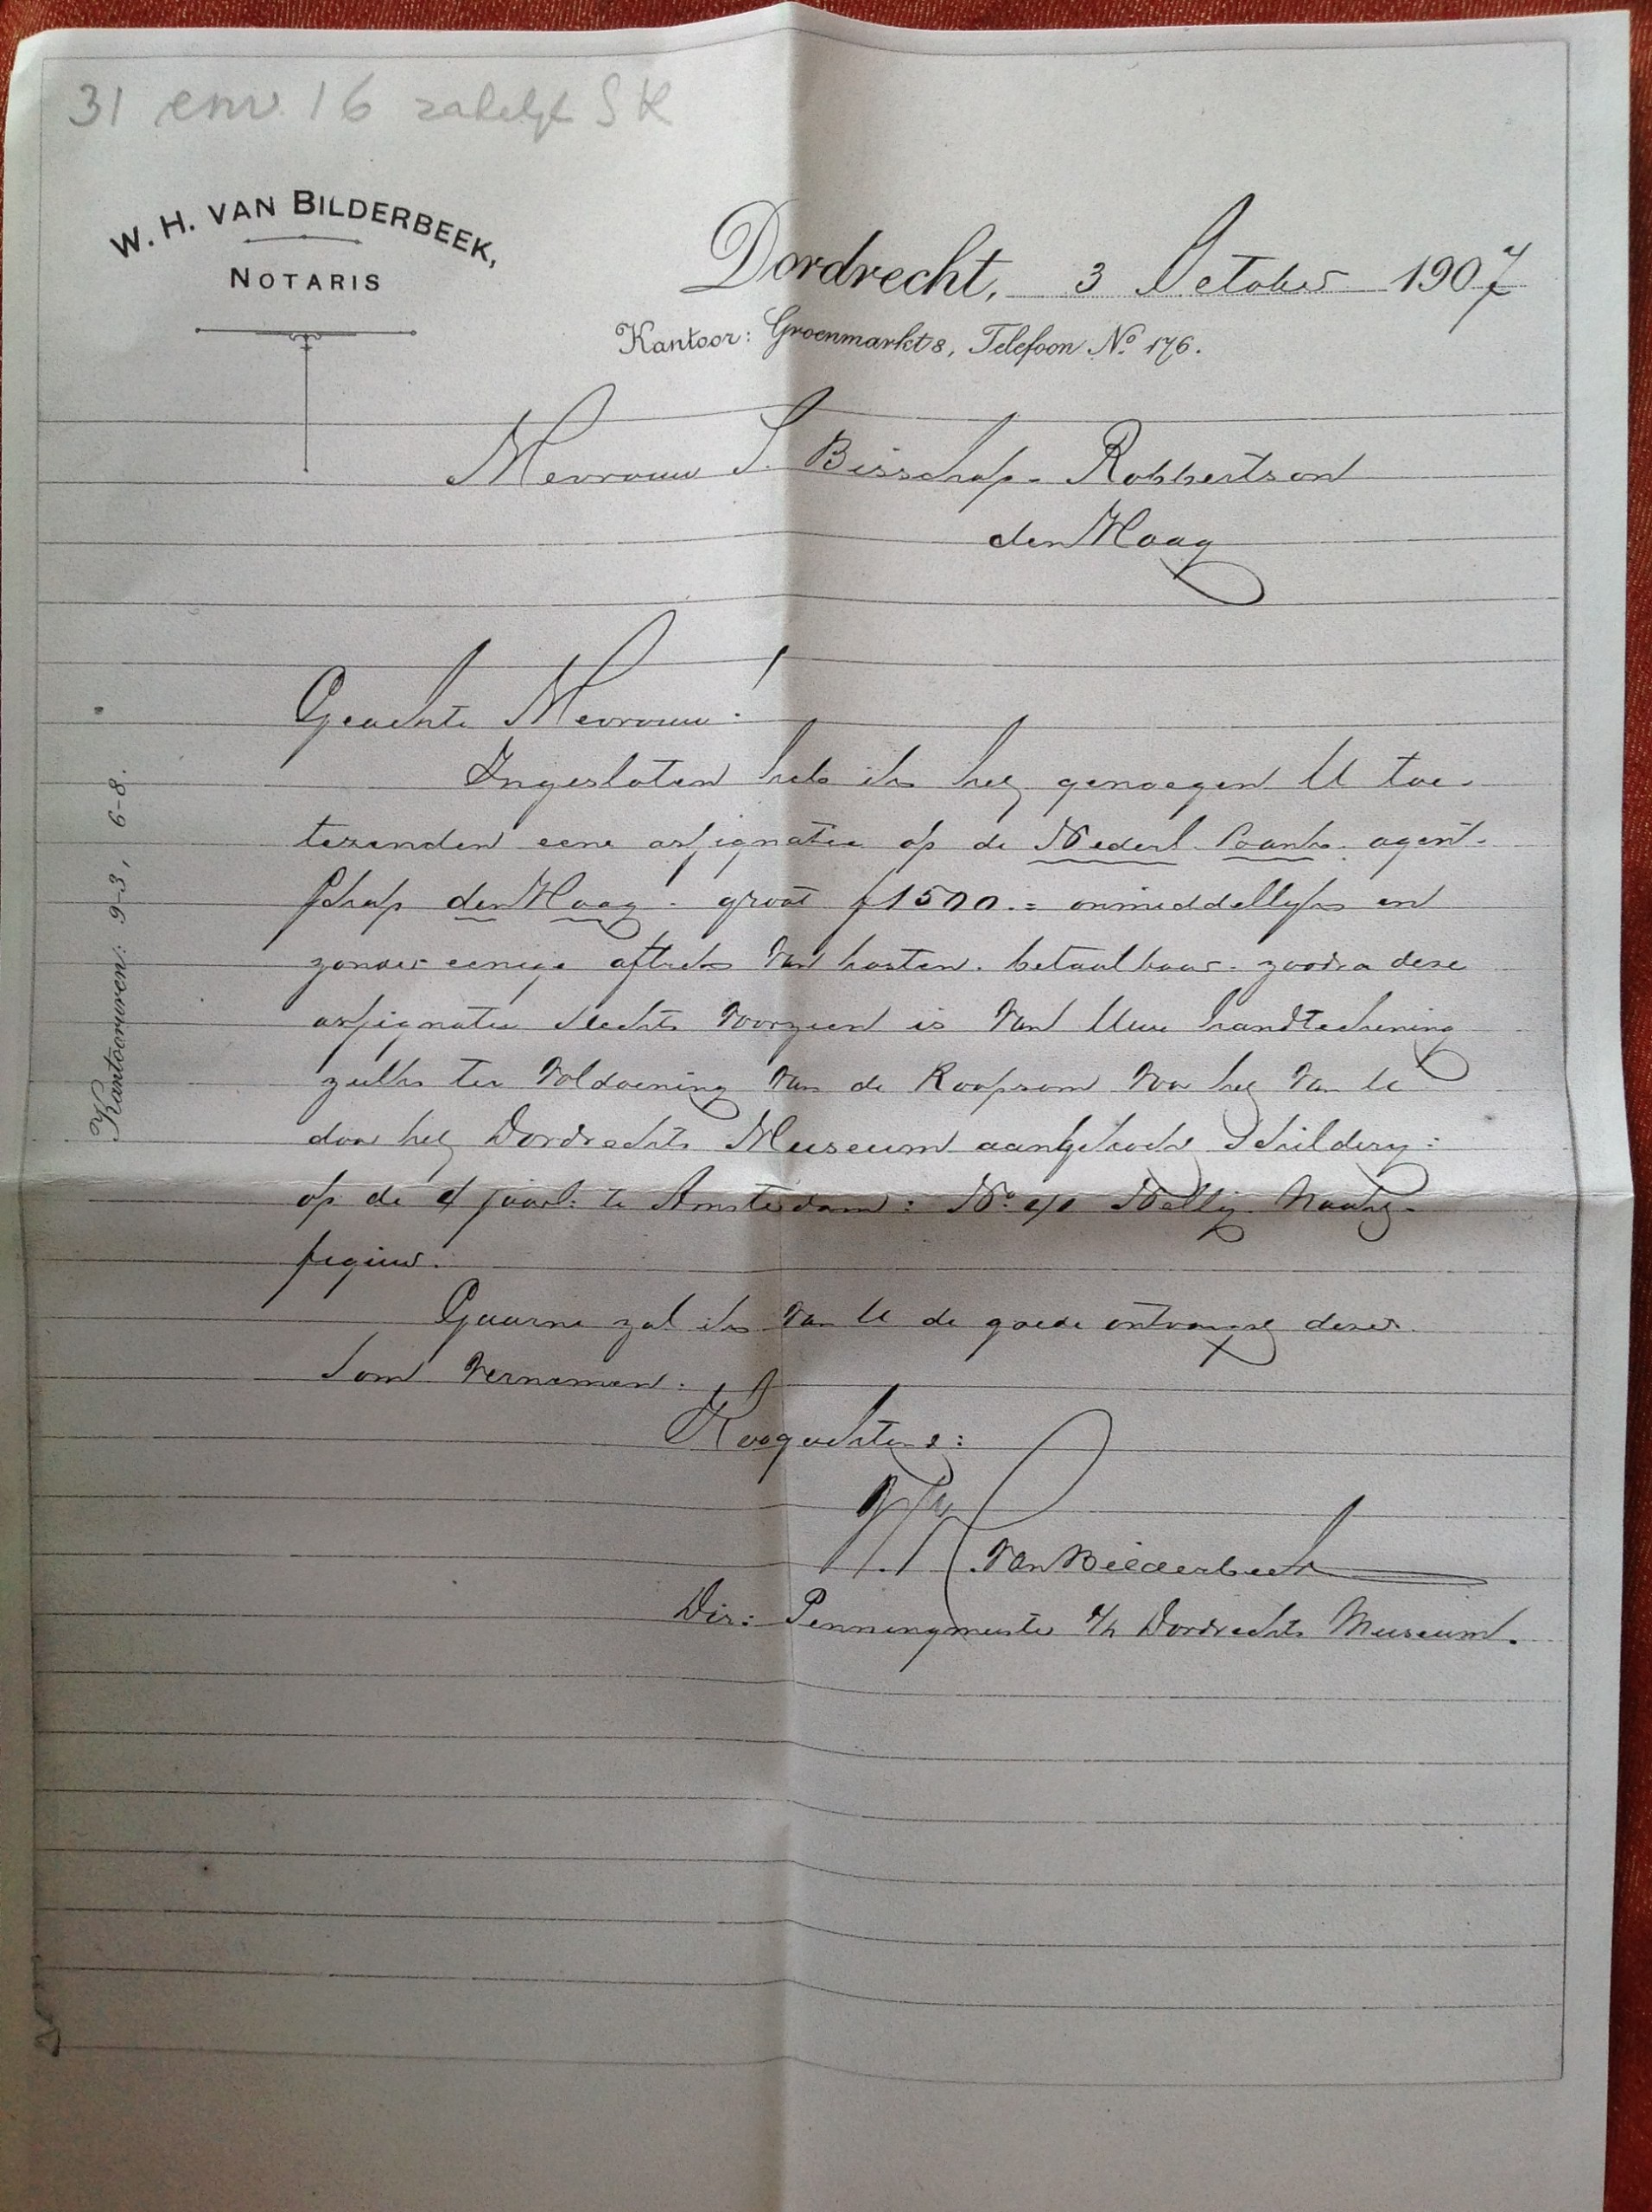 31 env. 16 zakelijk SK
W. H. VAN BILDERBEEK,
NOTARIS
Dordrecht, 3 October 1907
Kantoor: Groenmarkt 8, Telefoon No. 176.
Kantooruren: 9-3, 6-8.
Mevrouw S. Bisschop-Robbertson
den Haag
Geachte Mevrouw!
Ingesloten heb ik het genoegen U toe-
tezenden eene assignatie op de Nederl. Bank. agent-
schap den Haag. groot f 1500.= onmiddellijk en
zonder eenige aftrek van kosten. betaalbaar. zoodra deze
assignatie slechts voorzien is van Uwe handteekening
zulks ter voldoening van de Koopsom voor het van U
door het Dordrechts Museum aangekocht Schildery:
op de 4 jaarl: te Amsterdam: No.
figuur.
Gaarne zal ik van U de goede ontvangst dezer
som vernemen.
Hoogachtend:
van Bilderbeek
Dir: Penningmeester v/h Dordrechts Museum.